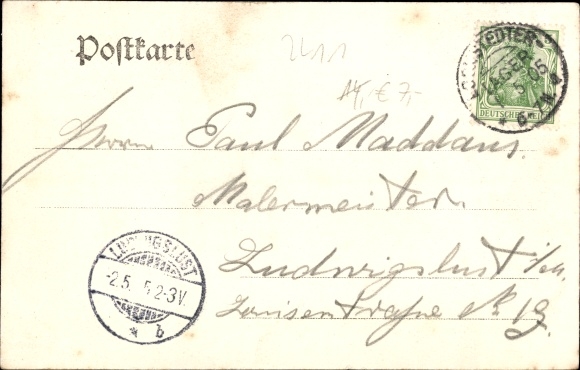 Postkarte
2211
€ 7,-
LOCKSTEDTER LAGER
5 05
6-7N
DEUTSCHES REICH
Herrn Paul Maddaus.
Malermeister.
Ludwigslust i/M.
Louisenstraße № 19.
LUDWIGSLUST
-2.5. 5.2-3V.
* b